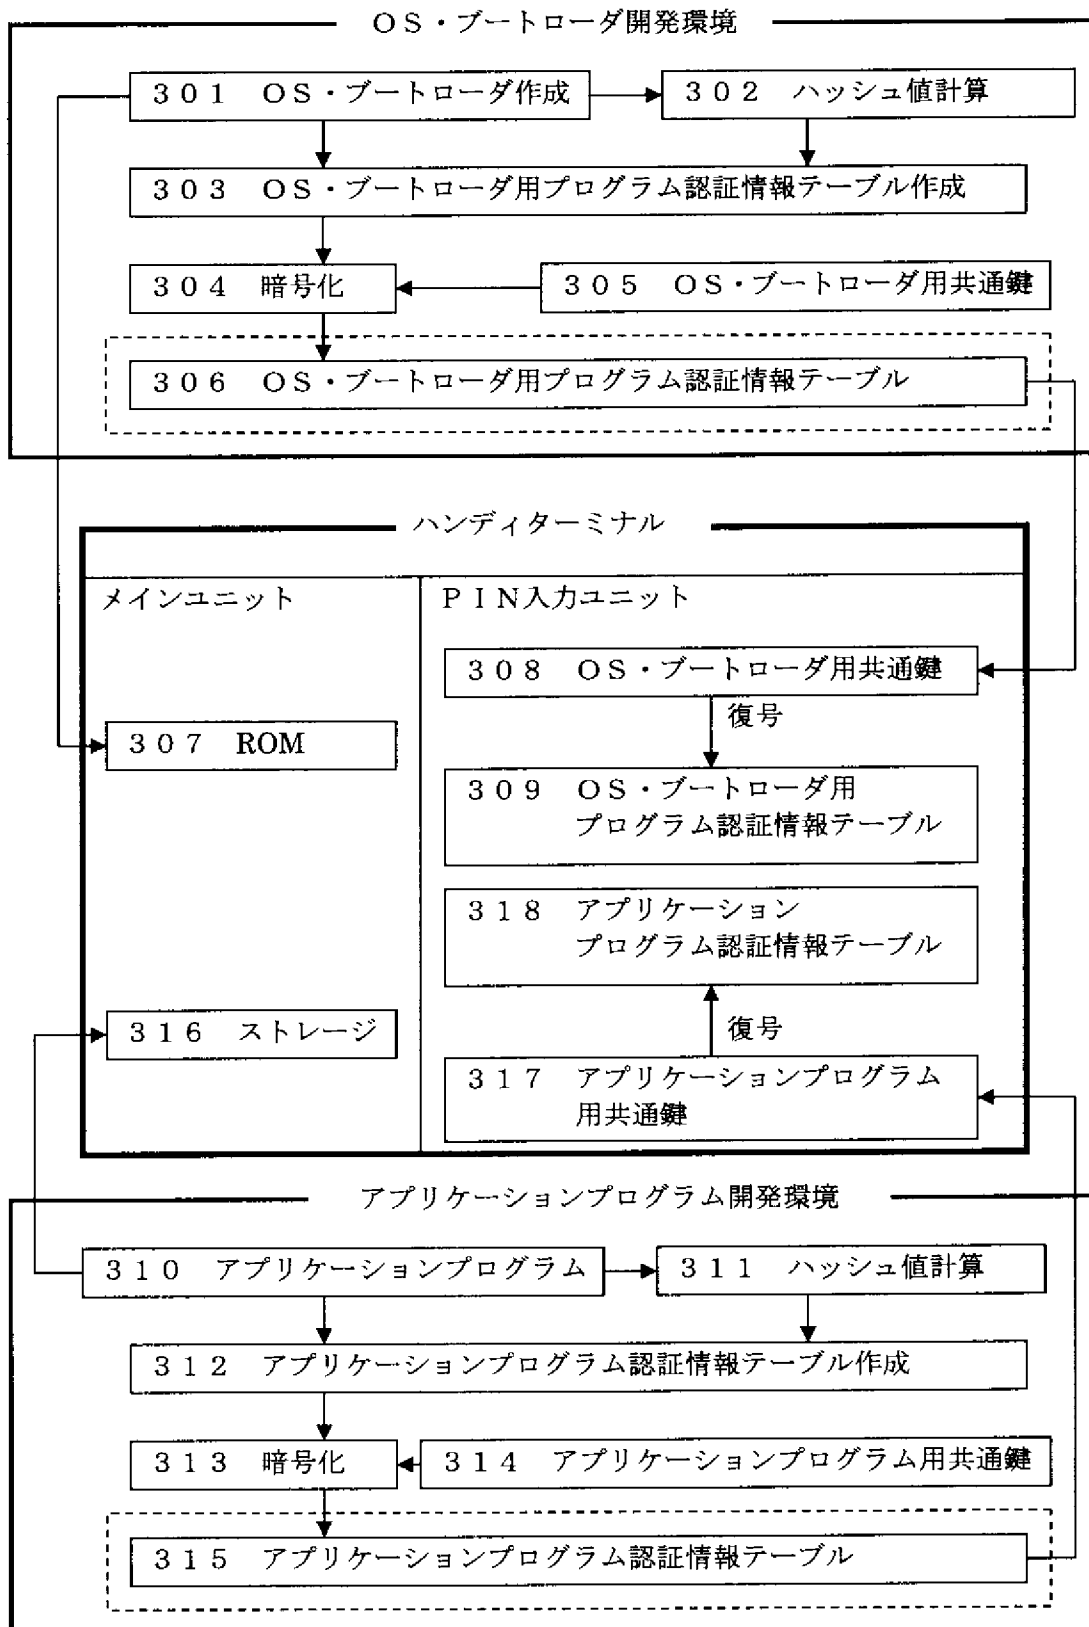 ＯＳ・ブートローダ開発環境
３０１　ＯＳ・ブートローダ作成
３０２　ハッシュ値計算
３０３　ＯＳ・ブートローダ用プログラム認証情報テーブル作成
３０４　暗号化
３０５　ＯＳ・ブートローダ用共通鍵
３０６　ＯＳ・ブートローダ用プログラム認証情報テーブル
ハンディターミナル
メインユニット
ＰＩＮ入力ユニット
３０８　ＯＳ・ブートローダ用共通鍵
復号
３０７　ROM
３０９　ＯＳ・ブートローダ用
プログラム認証情報テーブル
３１８　アプリケーション
プログラム認証情報テーブル
３１６　ストレージ
復号
３１７　アプリケーションプログラム
用共通鍵
アプリケーションプログラム開発環境
３１０　アプリケーションプログラム
３１１　ハッシュ値計算
３１２　アプリケーションプログラム認証情報テーブル作成
３１３　暗号化
３１４　アプリケーションプログラム用共通鍵
３１５　アプリケーションプログラム認証情報テーブル